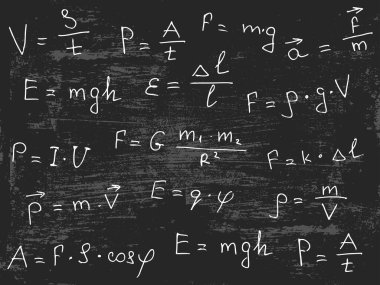 V = S/t P = A/t F = m·g a⃗ = F⃗/m
E = mgh ε = Δl/l F = ρ·g·V
P = I·U F = G m₁·m₂/R² F = k·Δl
p⃗ = m·v⃗ E = q·φ ρ = m/V
A = F·S·cosφ E = mgh P = A/t